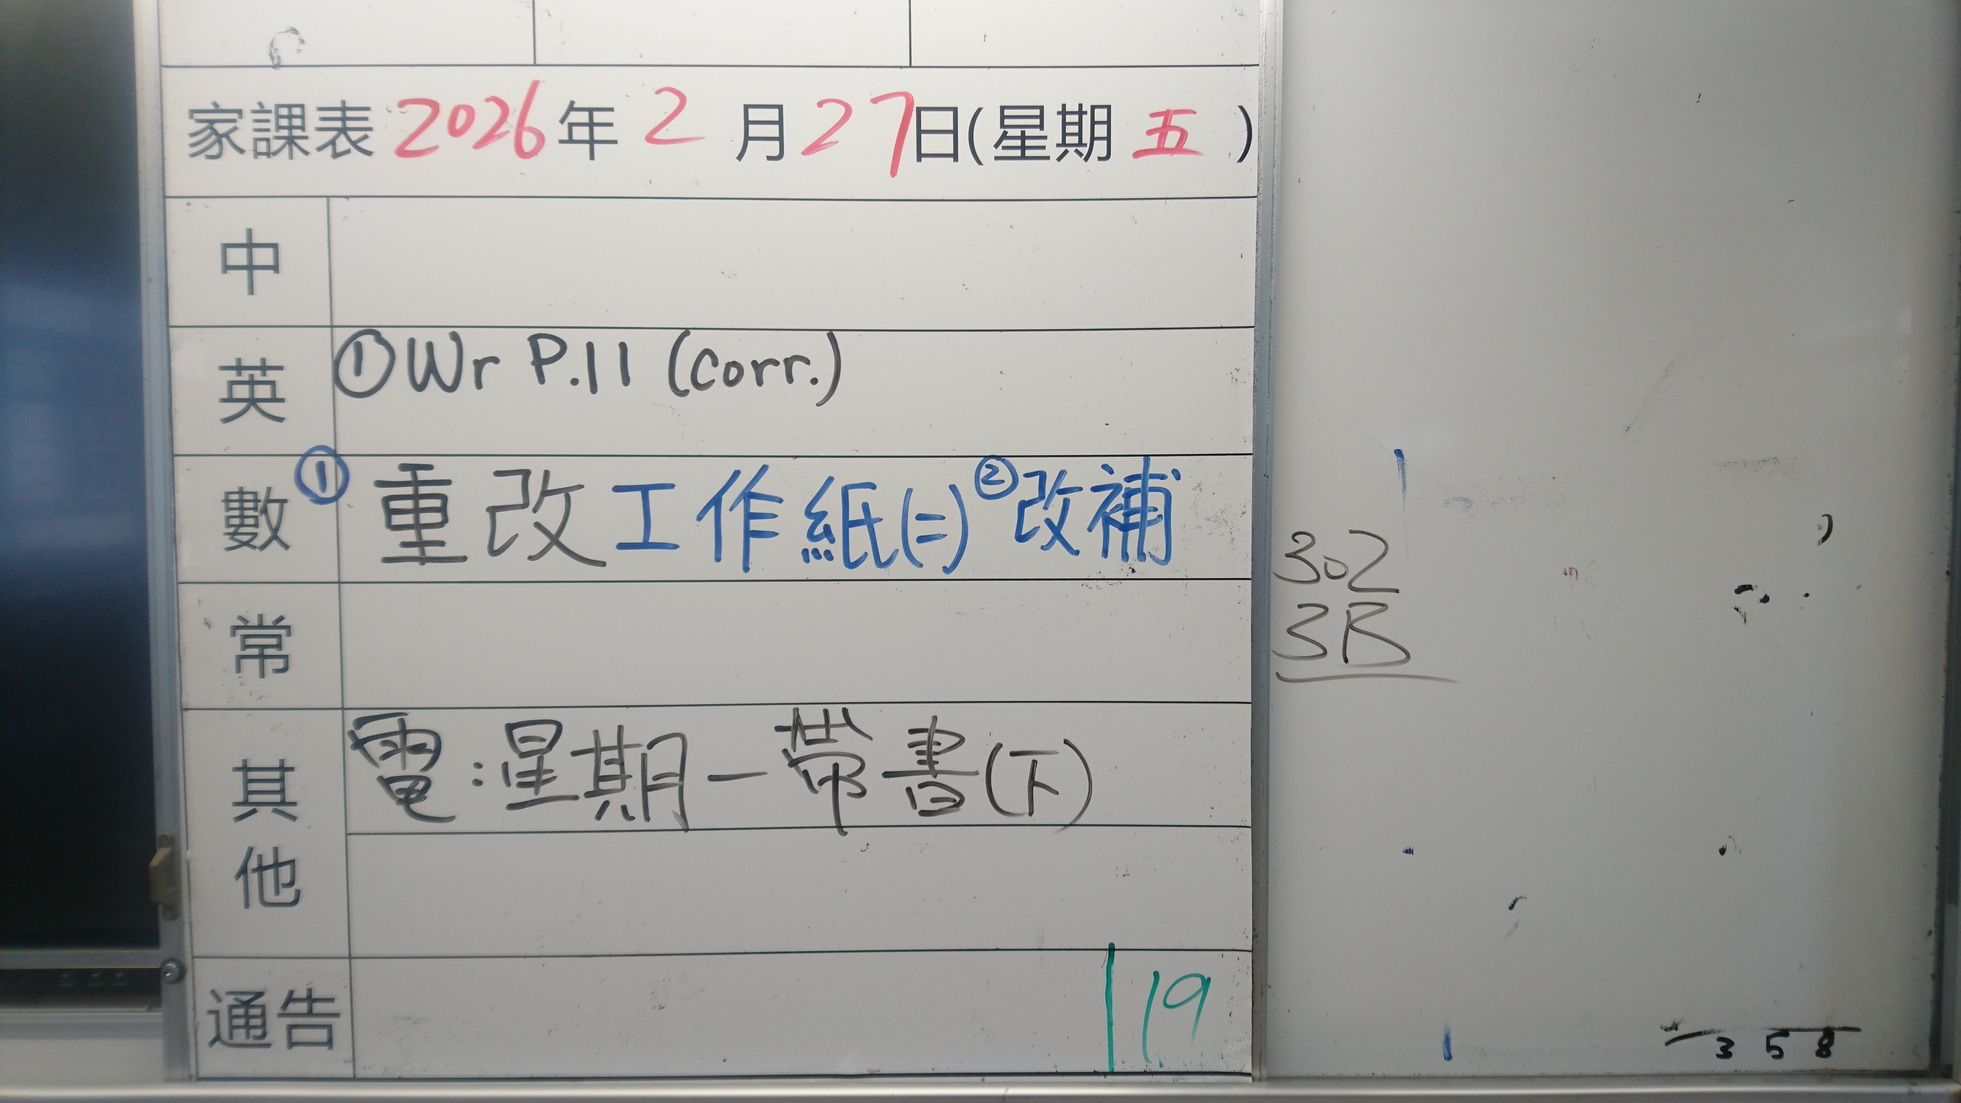 家課表 2026年 2 月 27日(星期 五 )
中
英 ①Wr P.11 (corr.)
數 ① 重改工作紙(二) ②改補
常
其他 電:星期一帶書(下)
通告 19
302
3B
3 5 8